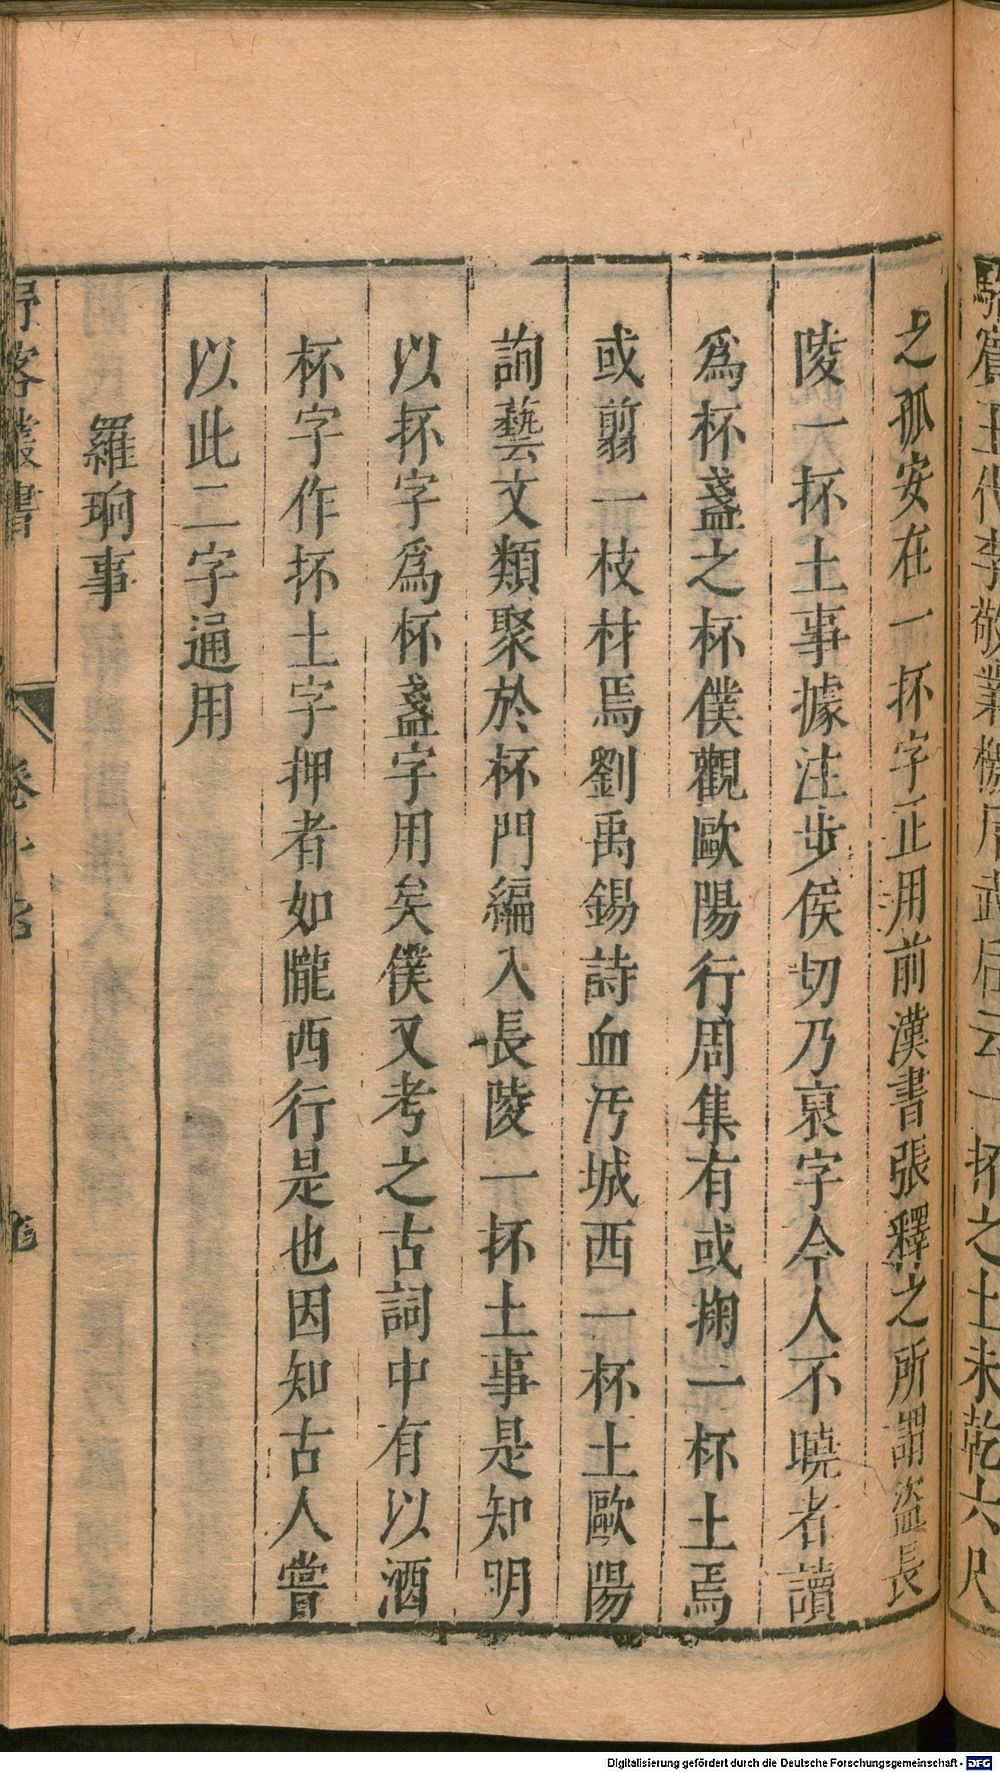 駱賓王代李敬業檄斥武后云一抔之土未乾六尺
之孤安在一抔字正用前漢書張釋之所謂盜長
陵一抔土事據注步侯切乃裒字今人不曉者讀
爲杯盞之杯僕觀歐陽行周集有或掬一杯土焉
或翦一枝材焉劉禹錫詩血汚城西一杯土歐陽
詢藝文類聚於杯門編入長陵一抔土事是知明
以抔字爲杯盞字用矣僕又考之古詞中有以酒
杯字作抔土字押者如隴西行是也因知古人嘗
以此二字通用
羅珦事
野客叢書 卷十
Digitalisierung gefördert durch die Deutsche Forschungsgemeinschaft - DFG